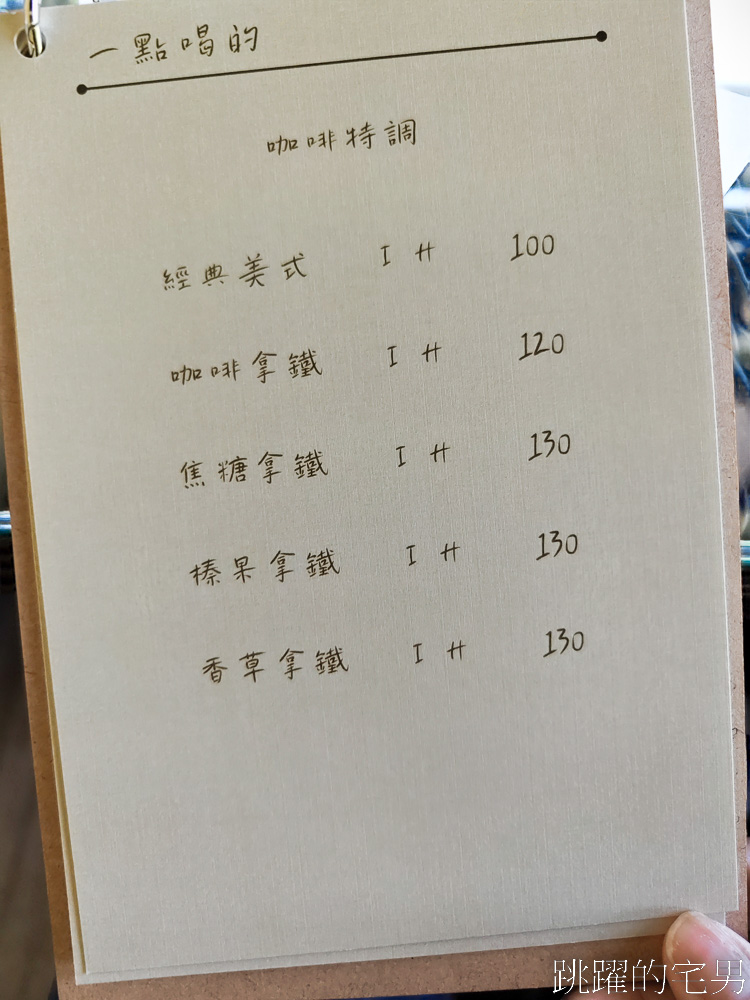 一點喝的
咖啡特調
經典美式 I H 100
咖啡拿鐵 I H 120
焦糖拿鐵 I H 130
榛果拿鐵 I H 130
香草拿鐵 I H 130
跳躍的宅男